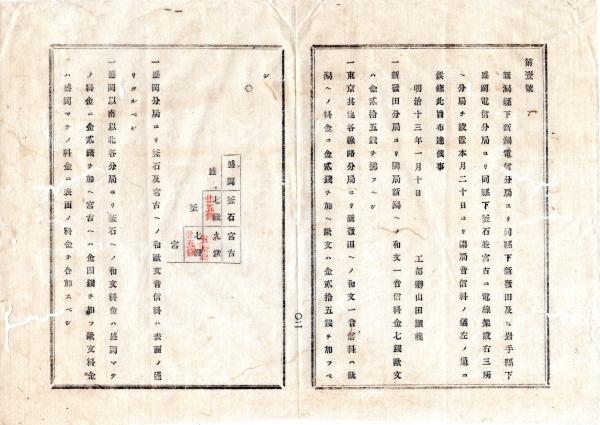 第壹號
新潟縣下新潟電信分局ヨリ同縣下新發田及ヒ岩手縣下
盛岡電信分局ヨリ同縣下釜石並宮古ニ電線架設右三所
ヘ分局ヲ設置本月二十日ヨリ開局音信料ノ儀左ノ通
候條此旨布達候事
明治十三年一月十日
工部卿山田顯義
一新發田分局ヨリ隣局新潟ヘノ和文一音信料金七錢歐文
ハ金貳拾五錢ヲ拂フヘシ
一東京其他各線路分局ヨリ新發田ヘノ和文一音信料ハ新
潟ヘノ料金ニ金貳錢ヲ加ヘ歐文ハ金貳拾五錢ヲ加フヘ
〇二
シ
〇
盛岡 釜石 宮古
盛 七錢 九錢
廿五錢
釜 七錢
廿五錢
宮
一盛岡分局ヨリ釜石及宮古ヘノ和歐文音信料ハ表面ノ通
リタルベシ
一盛岡以南以北各分局ヨリ釜石ヘノ和文料金ハ盛岡マテ
ノ料金ニ金貳錢ヲ加ヘ宮古ヘハ金四錢ヲ加フ歐文料金
ハ盛岡マテノ料金ニ表面ノ料金ヲ合加スベシ